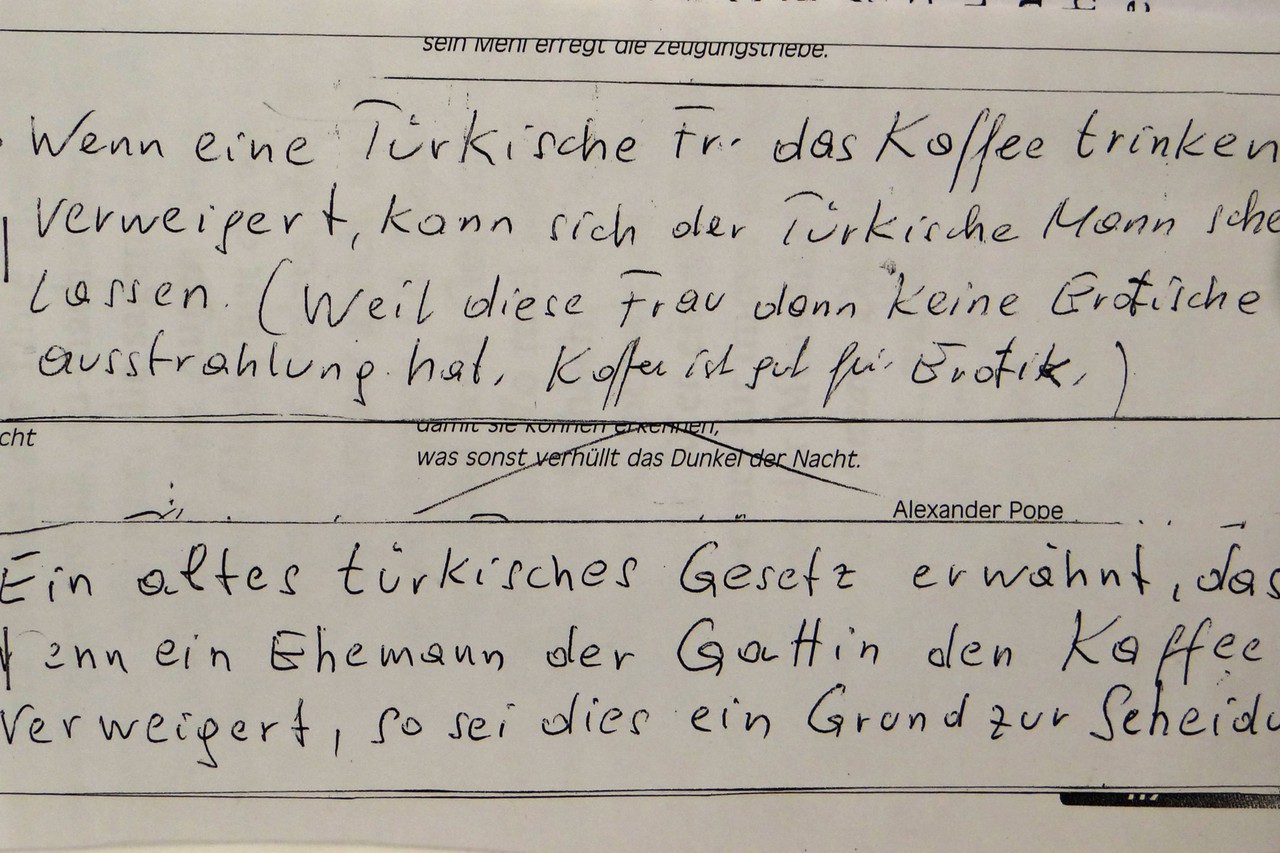 sein Mehl erregt die Zeugungstriebe.
Wenn eine Türkische Fr. das Koffee trinken
verweigert, kann sich der Türkische Mann sche
lassen. (Weil diese Frau dann keine Erotische
ausstrahlung hat, Koffee ist gut für Erotik.)
damit sie können erkennen,
cht
was sonst verhüllt das Dunkel der Nacht.
Alexander Pope
Ein altes türkisches Gesetz erwähnt, das
wenn ein Ehemann der Gattin den Kaffee
verweigert, so sei dies ein Grund zur Scheidu